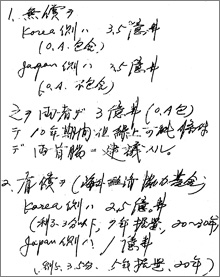 1. 無償ヲ
Korea側ハ 3.5億弗
(O.A. 包含)
Japan側ハ 2.5億弗
(O.A. 不包含)
之ヲ両者ガ 3億弗 (O.A包)
デ10年期間 但 繰上可能条件
デ両首脳ニ建議スル。
2. 有償ヲ(海外経済協力基金)
Korea側ハ 2.5億弗
(利3分以下, 7年据置, 20~30年)
Japan側ハ 1億弗
(利3.5分, 5年据置, 20年)